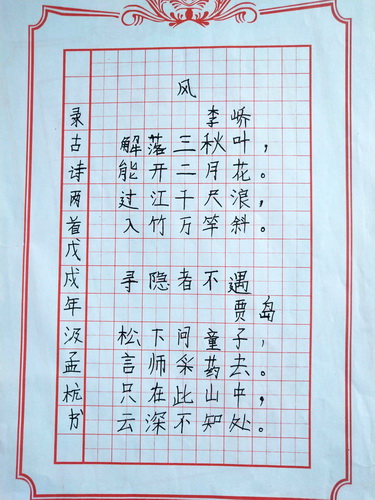 风
李峤
解落三秋叶，
能开二月花。
过江千尺浪，
入竹万竿斜。
寻隐者不遇
贾岛
松下问童子，
言师采药去。
只在此山中，
云深不知处。
录古诗两首戊戌年汲孟杭书